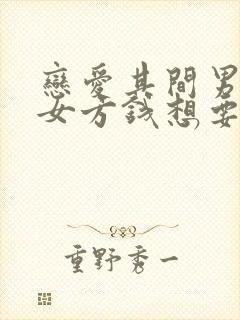 戀愛其間男
女方錢想要
重野秀一